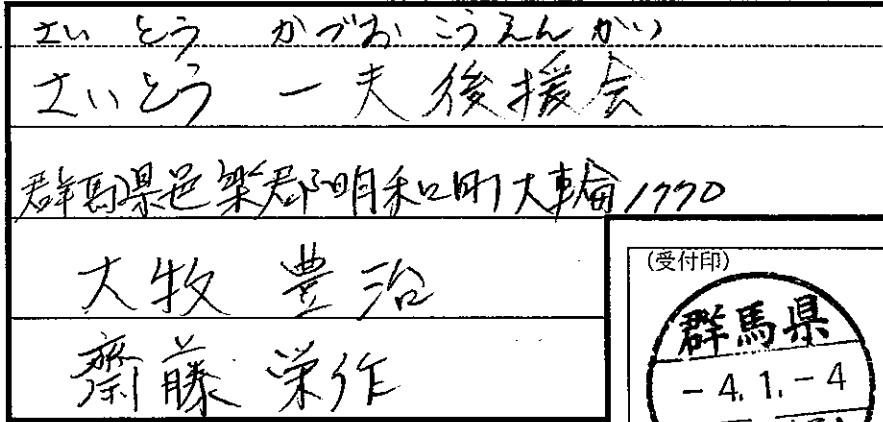 さい とう かづお こうえん かい
さいとう 一夫 後援会
群馬県邑楽郡明和町大輪1770
大牧 豊治
齋藤 栄作
(受付印)
群馬県
-4.1.-4